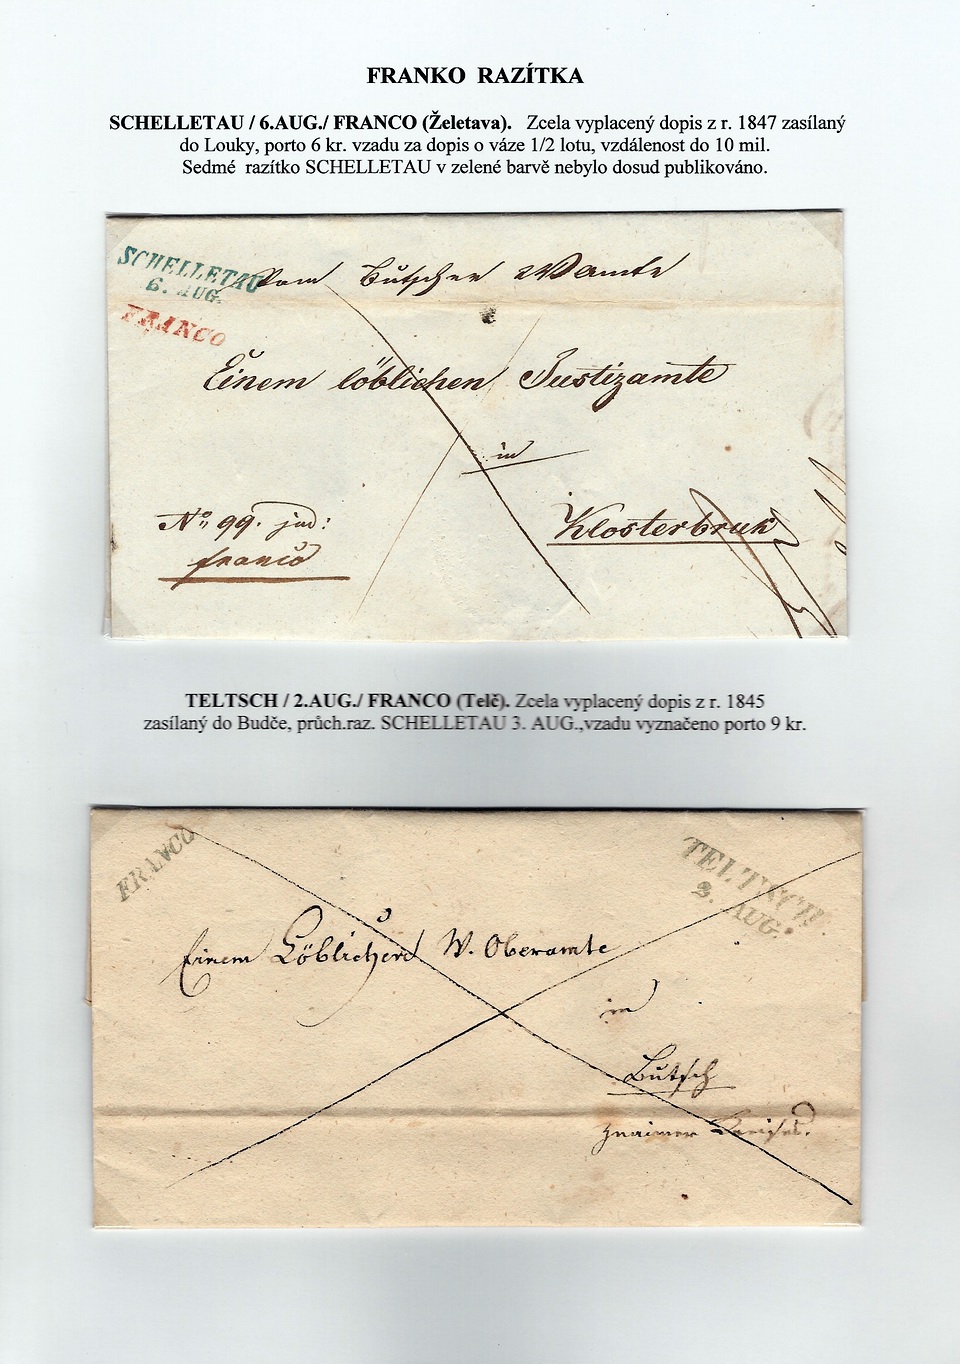 FRANKO RAZÍTKA
SCHELLETAU / 6.AUG./ FRANCO (Želetava). Zcela vyplacený dopis z r. 1847 zasílaný
do Louky, porto 6 kr. vzadu za dopis o váze 1/2 lotu, vzdálenost do 10 mil.
Sedmé razítko SCHELLETAU v zelené barvě nebylo dosud publikováno.
SCHELLETAU
6. AUG.
FRANCO
Vom Butscher Amte
Einem löblichen Justizamte
in
Klosterbruk
No 99. jud:
franco
TELTSCH / 2.AUG./ FRANCO (Telč). Zcela vyplacený dopis z r. 1845
zasílaný do Budče, průch.raz. SCHELLETAU 3. AUG.,vzadu vyznačeno porto 9 kr.
FRANCO
TELTSCH.
2. AUG.
Einem Löblichen W. Oberamte
in
Butsch
Znaimer Kreises.